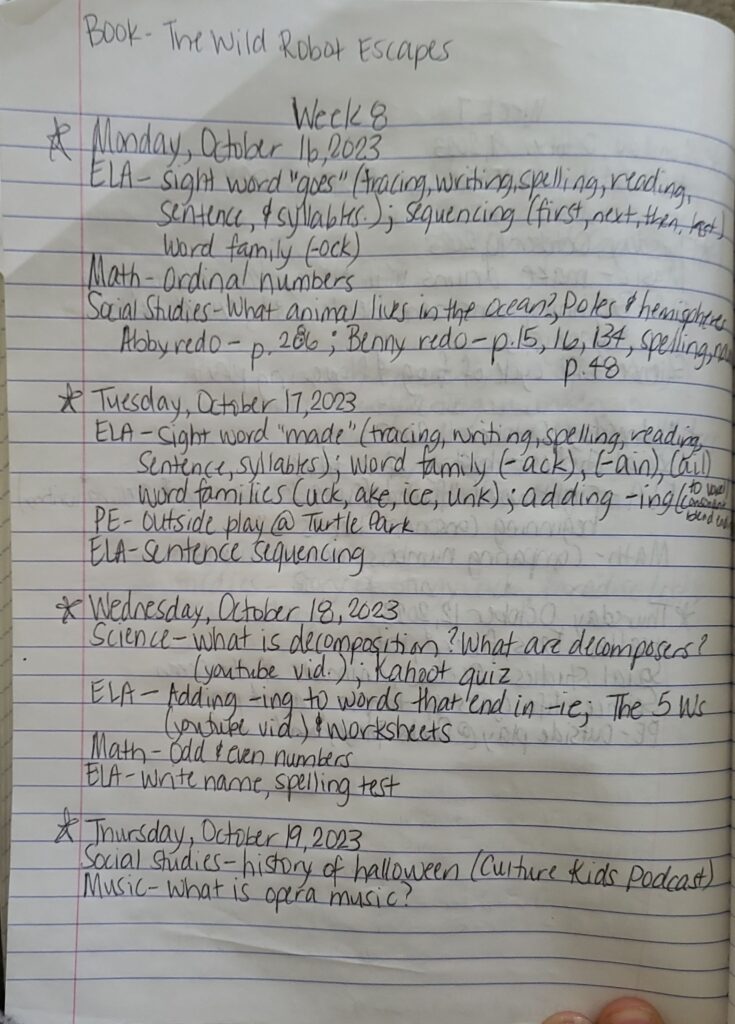 Book- The Wild Robot Escapes
Week 8
* Monday, October 16, 2023
ELA- sight word "goes" (tracing, writing, spelling, reading,
sentence, & syllables.); sequencing (first, next, then, last)
word family (-ock)
Math- ordinal numbers
Social Studies- What animal lives in the ocean?, Poles & hemispheres
Abby redo- p. 286; Benny redo- p. 15, 16, 134, spelling,
p. 48
* Tuesday, October 17, 2023
ELA- sight word "made" (tracing, writing, spelling, reading,
sentence, syllables); word family (-ack), (-ain), (ail)
word families (uck, ake, ice, unk); adding -ing (to
PE- outside play @ Turtle Park
ELA- sentence sequencing
* Wednesday, October 18, 2023
Science- what is decomposition? What are decomposers?
(youtube vid.); Kahoot quiz
ELA- Adding -ing to words that end in -ie; The 5 Ws
(youtube vid.) & worksheets
Math- Odd & even numbers
ELA- write name, spelling test
* Thursday, October 19, 2023
Social Studies- history of halloween (Culture Kids Podcast)
Music- what is opera music?